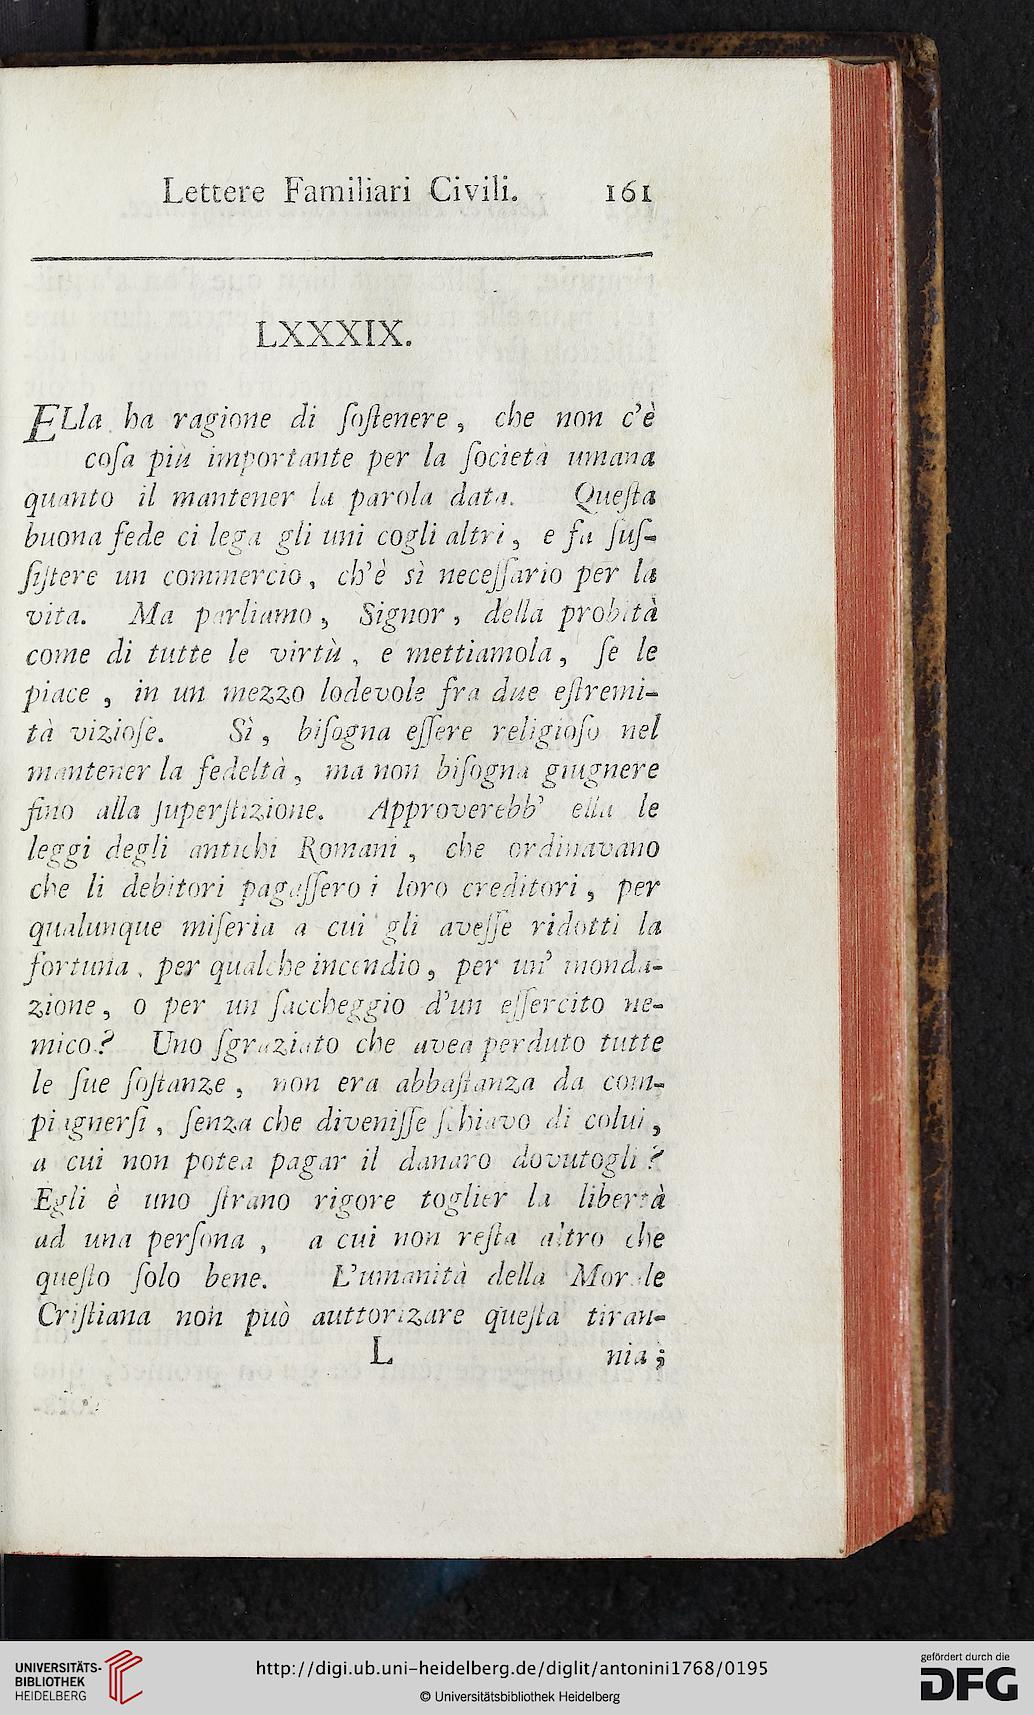 Lettere Familiari Civili. 161
LXXXIX.
ELla ha ragione di ſoſtenere, che non c'è
coſa più importante per la ſocietà umana
quanto il mantener la parola data. Queſta
buona fede ci lega gli uni cogli altri, e fa ſuſ-
ſiſtere un commercio, ch'è sì neceſſario per la
vita. Ma parliamo, Signor, della probità
come di tutte le virtù, e mettiamola, ſe le
piace, in un mezzo lodevole fra due eſtremi-
tà vizioſe. Sì, biſogna eſſere religioſo nel
mantener la fedeltà, ma non biſogna giugnere
fino alla ſuperſtizione. Approverebb' ella le
leggi degli antichi Romani, che ordinavano
che li debitori pagaſſero i loro creditori, per
qualunque miſeria a cui gli aveſſe ridotti la
fortuna, per qualche incendio, per un' inonda-
zione, o per un ſaccheggio d'un eſſercito ne-
mico? Uno ſgraziato che avea perduto tutte
le ſue ſoſtanze, non era abbaſtanza da com-
piagnerſi, ſenza che diveniſſe ſchiavo di colui,
a cui non potea pagar il danaro dovutogli?
Egli è uno ſtrano rigore toglier la libertà
ad una perſona, a cui non reſta altro che
queſto ſolo bene. L'umanità della Morale
Criſtiana non può auttorizare queſta tiran-
L nia;
UNIVERSITÄTS-
BIBLIOTHEK
HEIDELBERG
http://digi.ub.uni-heidelberg.de/diglit/antonini1768/0195
© Universitätsbibliothek Heidelberg
gefördert durch die
DFG